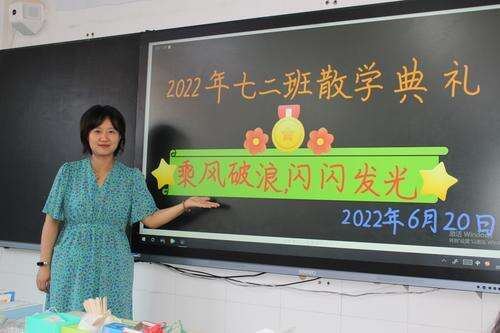 2022年七二班散学典礼
乘风破浪,闪闪发光
2022年6月20日
激活 Windows